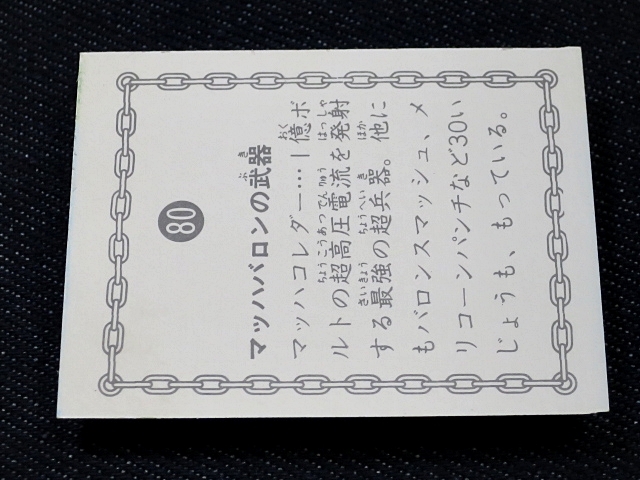 80
マッハバロンの武器
マッハコレダー…1億ボ
ルトの超高圧電流を発射
する最強の超兵器。他に
もバロンスマッシュ、メ
リコーンパンチなど30い
じょうも、もっている。